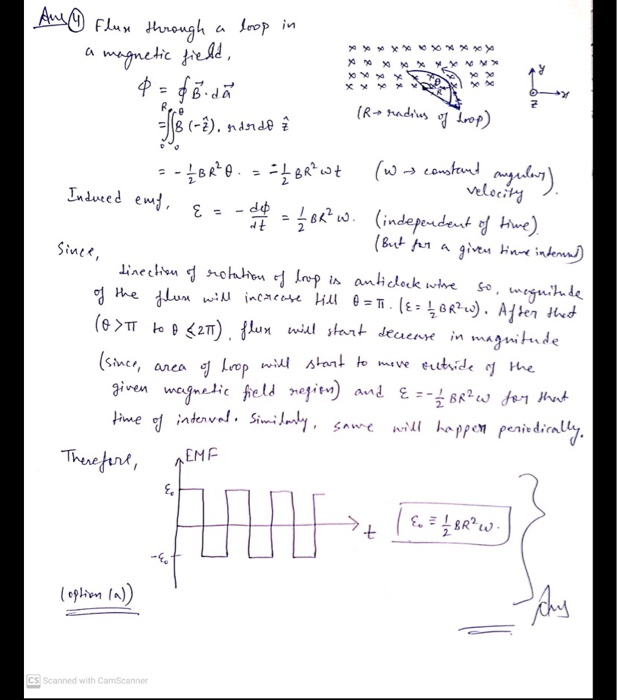 Ans ④ Flux through a loop in
a magnetic field,
ϕ = ∮ B⃗ . da⃗
= ∫₀ᴿ ∫₀^θ B (-ẑ). r dr dθ ẑ
(R → radius of loop)
y
x
z
θ
R
= - 1/2 BR²θ . = - 1/2 BR² ωt (ω → constant angular velocity).
Induced emf, ε = - dϕ/dt = 1/2 BR² ω. (independent of time)
(But for a given time interval)
Since,
direction of rotation of loop is anticlockwise so, magnitude
of the flux will increase till θ = π. (ε = 1/2 BR² ω). After that
(θ > π to θ ≤ 2π), flux will start decrease in magnitude
(since, area of loop will start to move outside of the
given magnetic field region) and ε = - 1/2 BR² ω for that
time of interval. Similarly, same will happen periodically.
Therefore,
EMF
ε₀
-ε₀
t
ε₀ ≡ 1/2 BR² ω.
(option (a))
Ans
CS Scanned with CamScanner